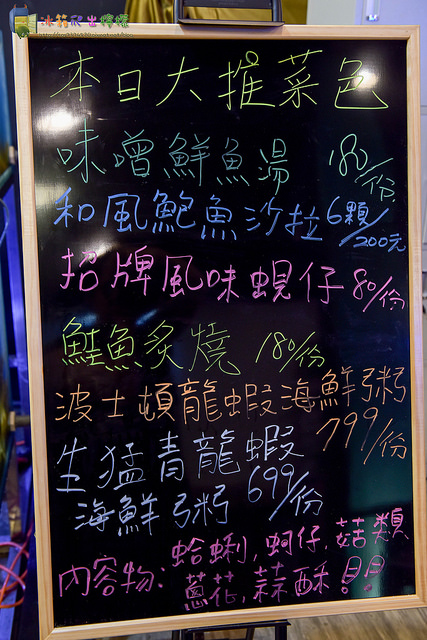 冰箱爬出檸檬
本日大推菜色
味噌鮮魚湯 180/份
和風鮑魚沙拉 6顆/200元
招牌風味蜆仔 80/份
鮭魚炙燒 180/份
波士頓龍蝦海鮮粥
799/份
生猛青龍蝦
海鮮粥 699/份
內容物: 蛤蜊, 蚵仔, 菇類
蔥花, 蒜酥!!